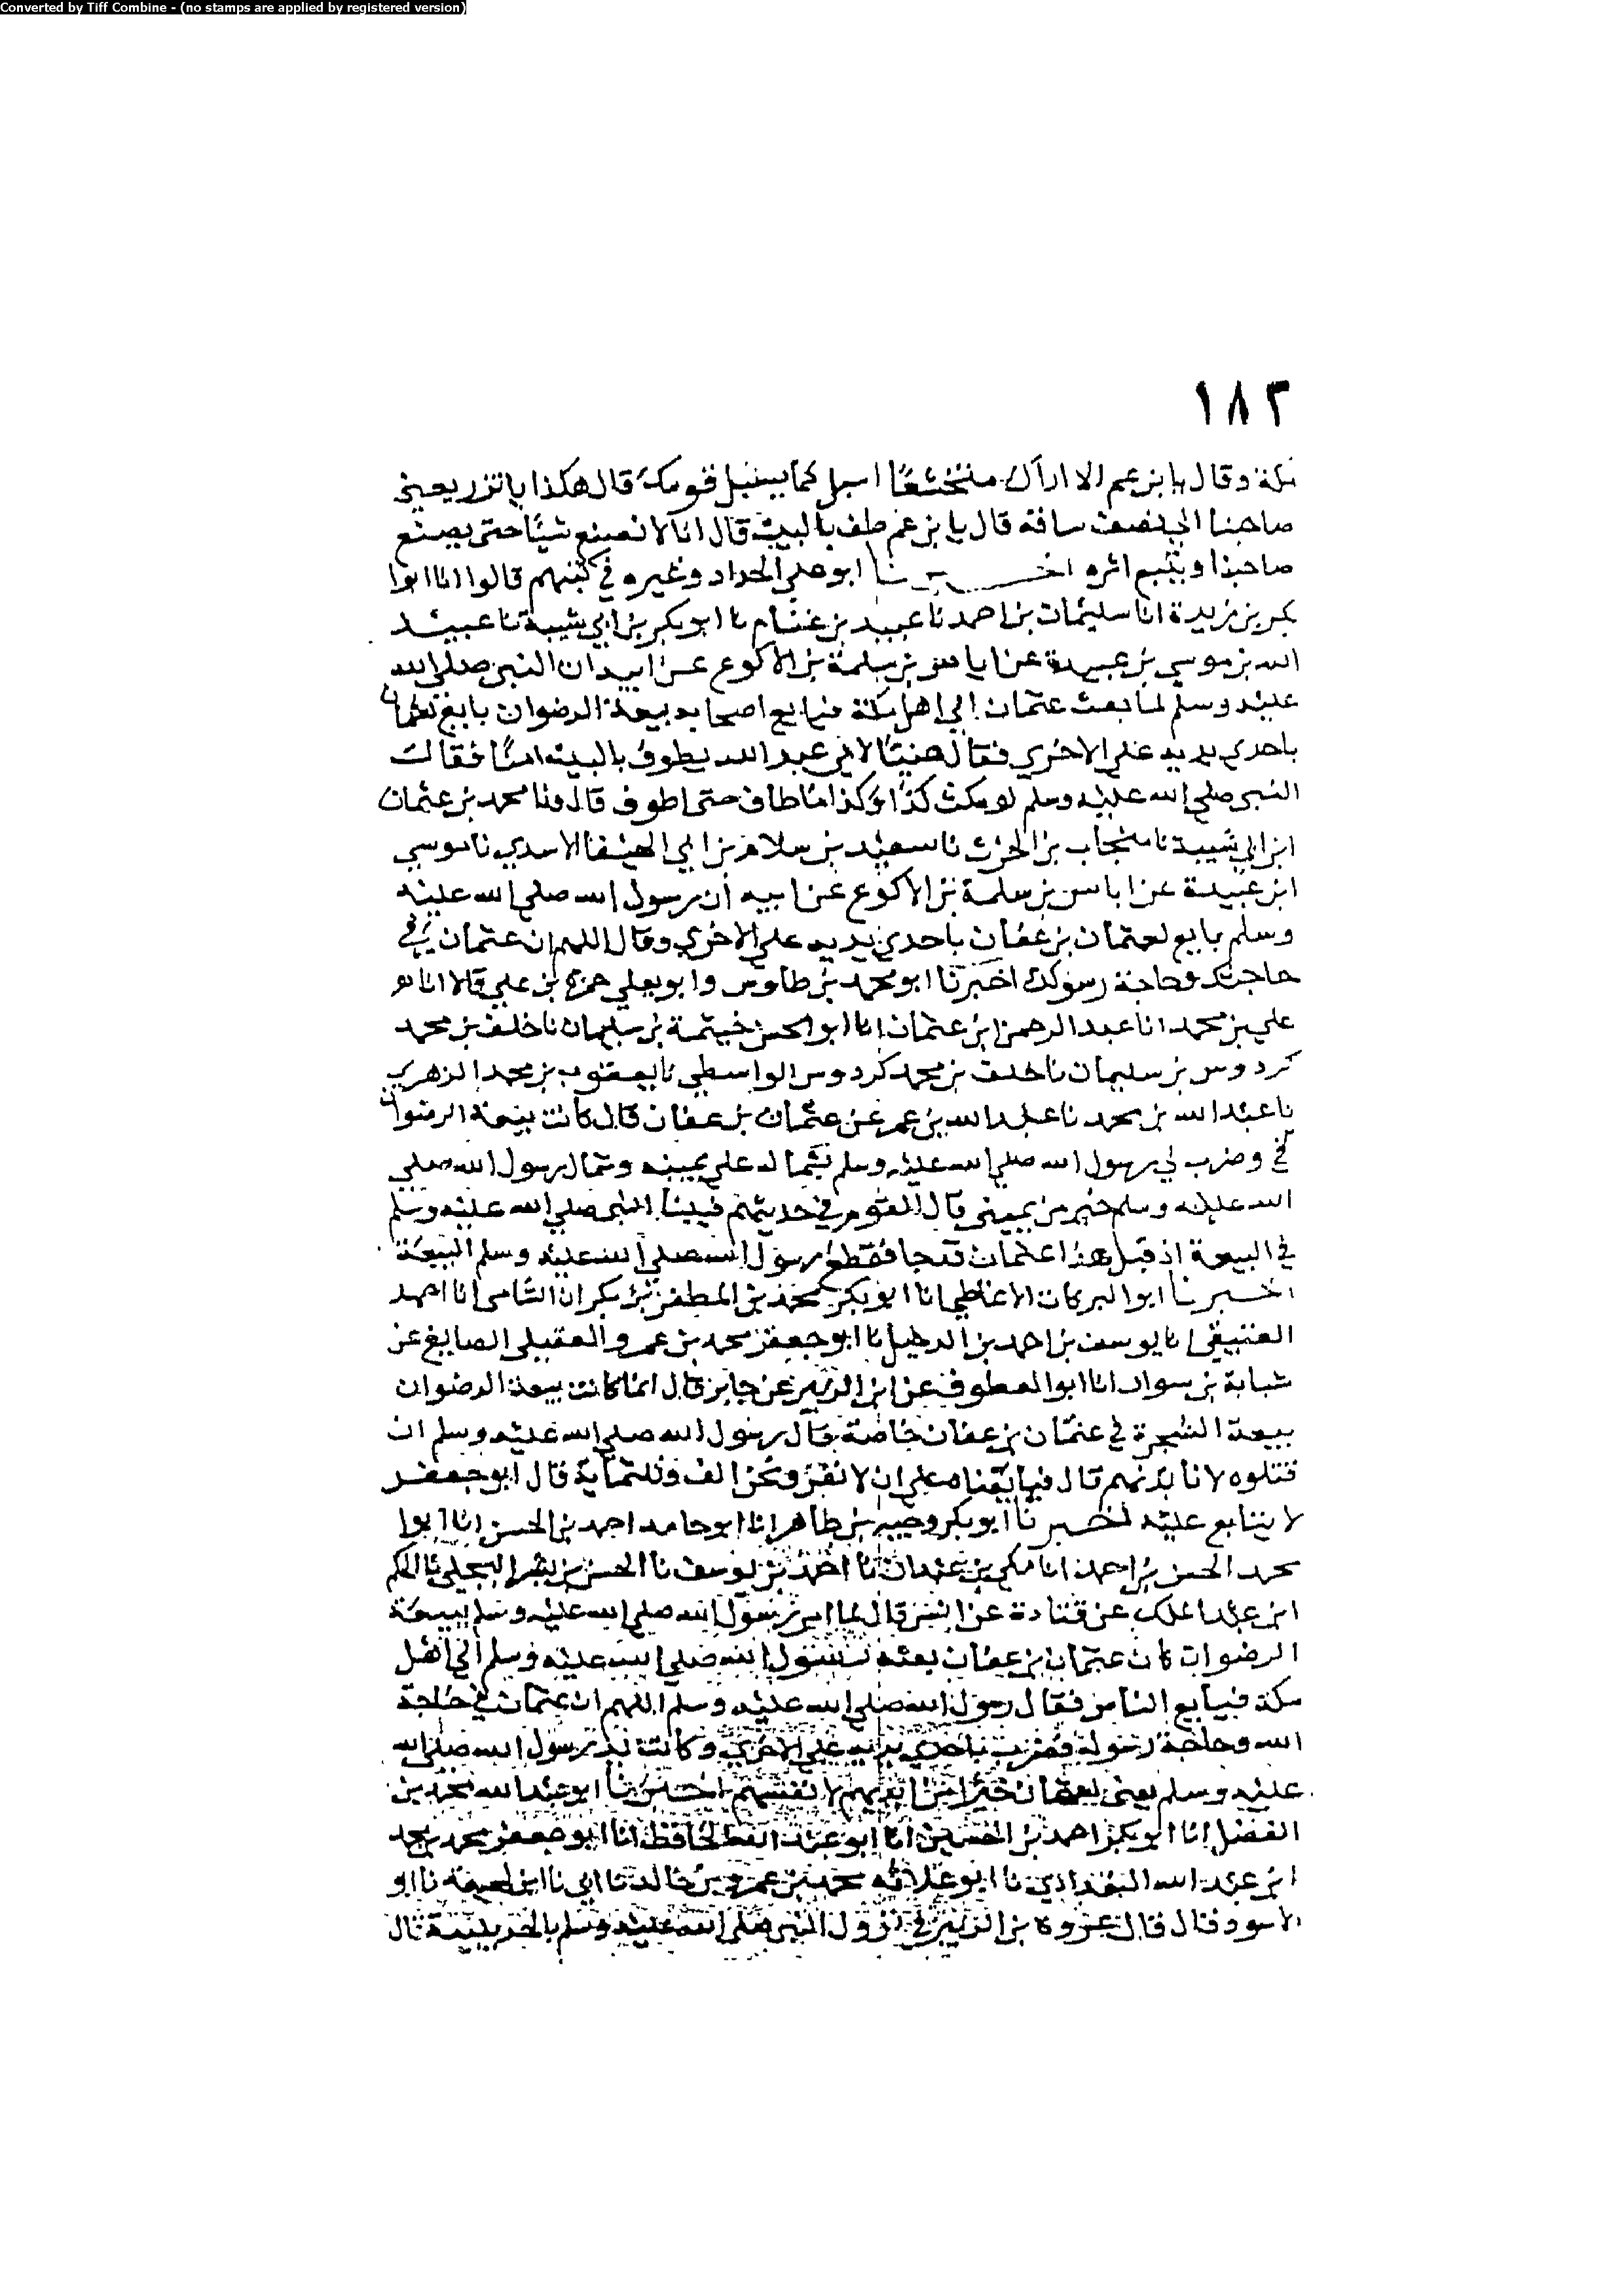 Converted by Tiff Combine - (no stamps are applied by registered version)
١٨٣
مكة وقال يا بن عم الا اراك متخشعا اسبل كما يسبل قومك قال هكذا ياتزر
صاحبنا الى نصف ساقه قال يا بن عم طف بالبيت قال انا لا نصنع شيئا حتى يصنع
صاحبنا ونتبع اثره اخبرنا ابو علي الحداد وغيره في كتبهم قالوا انا ابو
بكر بن ريذة انا سليمان بن احمد نا عبيد بن غنام نا ابو بكر بن ابي شيبة نا عبيد
الله بن موسى بن عبيدة عن اياس بن سلمة بن الاكوع عن ابيه ان النبي صلى الله
عليه وسلم لما بعث عثمان الى اهل مكة فبايع اصحابه بيعة الرضوان بايع لعثمان
باحدى يديه على الاخرى فقال هنيئا لابي عبد الله يطوف بالبيت امنا فقال
النبي صلى الله عليه وسلم لو مكث كذا وكذا ما طاف حتى اطوف قال ونا محمد بن عثمان
ابن ابي شيبة نا منجاب بن الحرث نا سعيد بن سلام بن ابي الاسدي نا موسى
ابن عبيدة عن اياس بن سلمة بن الاكوع عن ابيه ان رسول الله صلى الله عليه
وسلم بايع لعثمان بن عفان باحدى يديه على الاخرى وقال اللهم ان عثمان في
حاجتك وحاجة رسولك اخبرنا ابو محمد بن طاوس وابو يعلي حمزة بن علي قالا انا
علي بن محمد انا عبد الرحمن بن عثمان انا ابو الحسن خيثمة بن سليمان نا خلف بن محمد
كردوس بن سليمان نا خلف بن محمد كردوس الواسطي نا يعقوب بن محمد الزهري
نا عبد الله بن محمد نا عبد الله بن عمر عن عثمان بن عفان قال كانت بيعة الرضوان
في وضرب لي رسول الله صلى الله عليه وسلم بشماله على يمينه وشمال رسول الله صلى
الله عليه وسلم خير من يميني قال القوم في حديثهم فبينا النبي صلى الله عليه وسلم
في البيعة اذ قيل هذا عثمان قد جا فقطع رسول الله صلى الله عليه وسلم البيعة
اخبرنا ابو البركات الانماطي انا ابو بكر محمد بن المظفر بن بكران الشامي انا احمد
العتيقي انا يوسف بن احمد بن الدخيل نا ابو جعفر محمد بن عمرو العقيلي الصايغ عن
شبابة بن سوار انا ابو العطوف عن ابن الزبير عن جابر قال انما كانت بيعة الرضوان
بيعة الشجرة في عثمان بن عفان خاصة قال رسول الله صلى الله عليه وسلم ان
قتلوه لانابذنهم قال فبايعناه على ان لا نفر ونحن الف وثلثماية قال ابو جعفر
لا يتابع عليه اخبرنا ابو بكر وجيه بن طاهر انا ابو حامد احمد بن الحسن انا ابو
محمد الحسن بن احمد انا مكي بن عبدان نا احمد بن يوسف نا الحسن بن بشر البجلي نا الحكم
ابن عبد الملك عن قتادة عن انس قال لما امر رسول الله صلى الله عليه وسلم ببيعة
الرضوان كان عثمان بن عفان بعثه رسول الله صلى الله عليه وسلم الى اهل
مكة فبايع الناس فقال رسول الله صلى الله عليه وسلم اللهم ان عثمان في حاجة
الله وحاجة رسوله فضرب باحدى يديه على الاخرى وكانت يد رسول الله صلى الله
عليه وسلم يعني لعثمان خيرا من ايديهم لانفسهم اخبرنا ابو عبد الله محمد بن
الفضل انا ابو بكر احمد بن الحسين انا ابو عبد الله الحافظ انا ابو جعفر محمد بن محمد
ابن عبد الله البغدادي نا ابو علاثه محمد بن عمرو بن خالد نا ابي نا ابن لهيعة نا ابو
الاسود قال قال عروة بن الزبير في نزول النبي صلى الله عليه وسلم بالحديبية قال